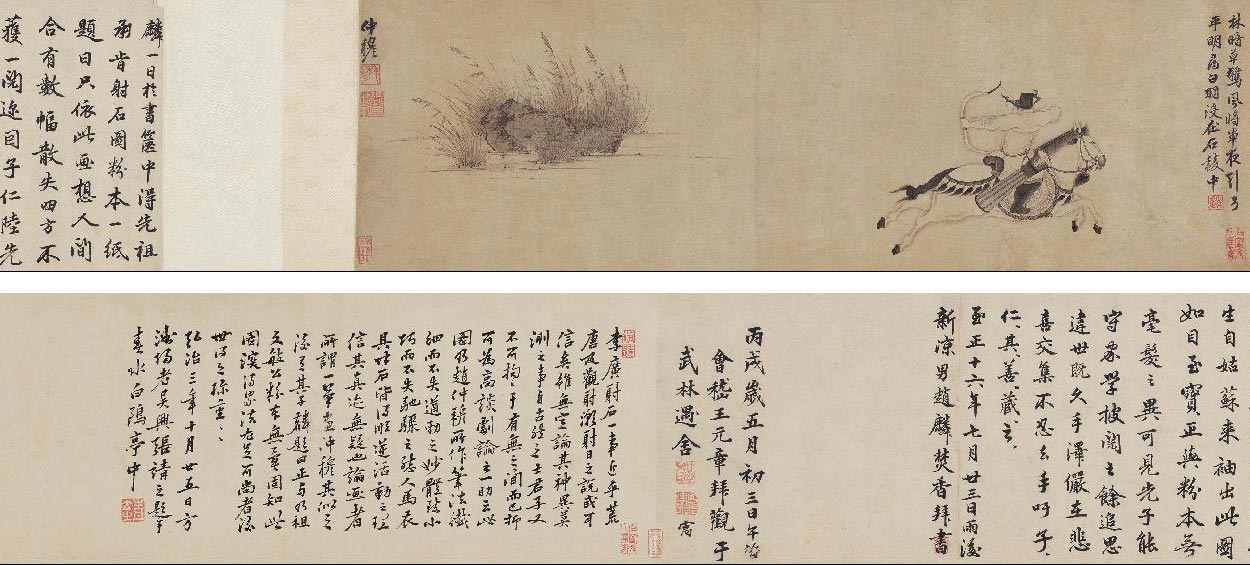 林暗草驚風將軍夜引弓
平明尋白羽沒在石稜中
仲穆
麟一日於書篋中得先祖
所肯射石圖粉本一紙
題曰只依此画想人間
合有數幅散失四方不
獲一閱迩因子仁陸先
生自姑蘇来袖出此圖
如目至寶正與粉本無
毫髮之異可見先子能
守家學披閱之餘追思
違世既久手澤儼在悲
喜交集不忍去手吁子
仁其善藏之
至正十六年七月廿三日雨後
新凉男趙麟焚香拜書
丙戌歲五月初三日午
會嵇王元章拜觀于
武林遇舍
李廣射石一事近乎荒
唐及觀射潮射日之説或可
信矣雖無定論其神異莫
測之事自古有之士君子又
不可拘于有無之間而已抑
可為高談劇論之一助云此
圖乃趙仲穆所作筆法纖
細而不失遒勁之妙體致小
巧而不失馳驟之態人馬衣
具石皆得順逆活動之理
信其真迹無疑也論画者
所謂一筆画仲穆其似之
後之其子麟題曰正与乃祖
粉本無異固知此
圖深得家法可尚者後
世得之珍重
弘治三年十月廿五日
吴興張靖之題于
春水白鷗亭中